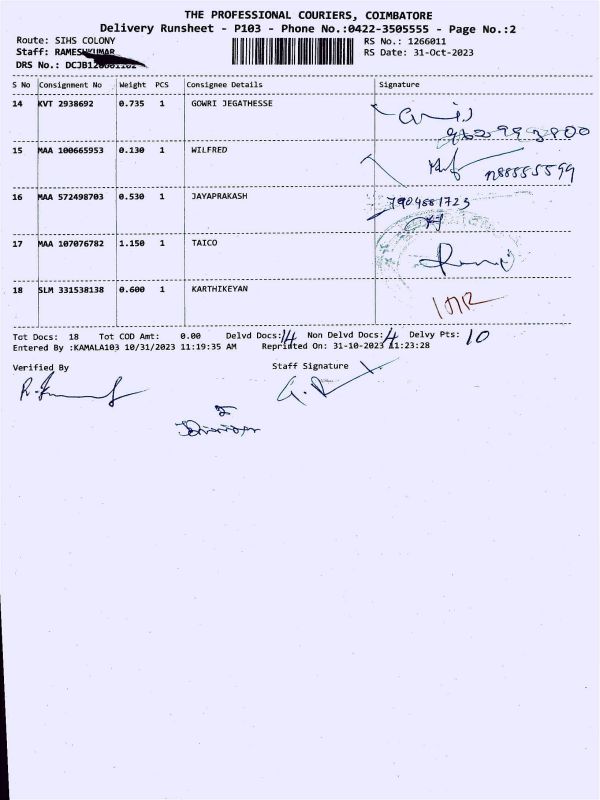 THE PROFESSIONAL COURIERS, COIMBATORE
Delivery Runsheet - P103 - Phone No.:0422-3505555 - Page No.:2
Route: SIHS COLONY RS No.: 1266011
Staff: RAMESHKUMAR RS Date: 31-Oct-2023
DRS No.:
S No Consignment No Weight PCS Consignee Details Signature
14 KVT 2938692 0.735 1 GOWRI JEGATHESSE
15 MAA 100665953 0.130 1 WILFRED
16 MAA 572498703 0.530 1 JAYAPRAKASH
17 MAA 107076782 1.150 1 TAICO
18 SLM 331538138 0.600 1 KARTHIKEYAN
Tot Docs: 18 Tot COD Amt: 0.00 Delvd Docs: 14 Non Delvd Docs: 4 Delvy Pts: 10
Entered By :KAMALA103 10/31/2023 11:19:35 AM Reprinted On: 31-10-2023 11:23:28
Verified By Staff Signature